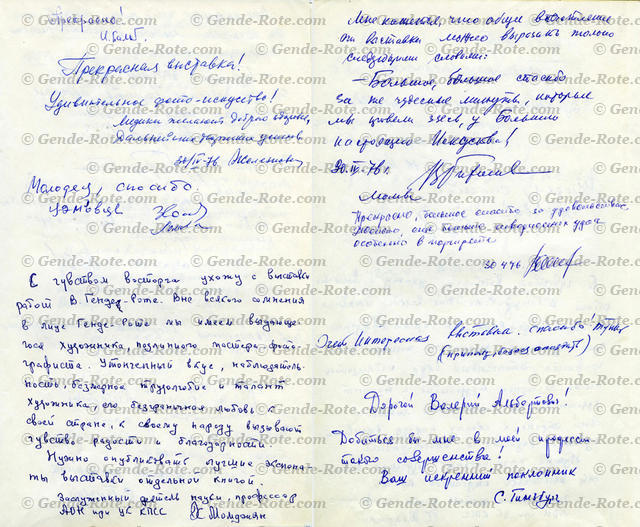 Прекрасно!
Прекрасная выставка!
Удивительное фото-искусство!
Медики желают доброго
Дальнейших успехов
30/IV-76
Молодец, спасибо.
С чувством восторга ухожу с выставки
работ В. Гендер-Роте. Вне всякого сомнения
в лице Генде-Роте мы имеем выдающе-
гося художника подлинного мастера фото-
графиста. Утонченный вкус, наблюдатель-
ность, безмерное трудолюбие и талант
художника, его безграничная любовь к
своей стране, к своему народу вызывают
чувство радости и благодарности.
Нужно опубликовать лучшие экспона-
ты выставки отдельной книгой.
Заслуженный деятель науки профессор
АОН при ЦК КПСС
Мне кажется, что общее впечатление
от выставки можно выразить только
следующими словами:
— Большое, большое спасибо
за те чудесные минуты, которые
мы провели здесь, у большого
настоящего Искусства!
30.IV.76 г.
Москва
Прекрасно, большое спасибо за удовольствие
особенно в портрете
30 4 76
Очень интересная выставка. Спасибо!
Дорогой Валерий Альбертович!
Добиться бы мне в моей профессии
такого совершенства!
Ваш искренний поклонник
© Gende-Rote.com